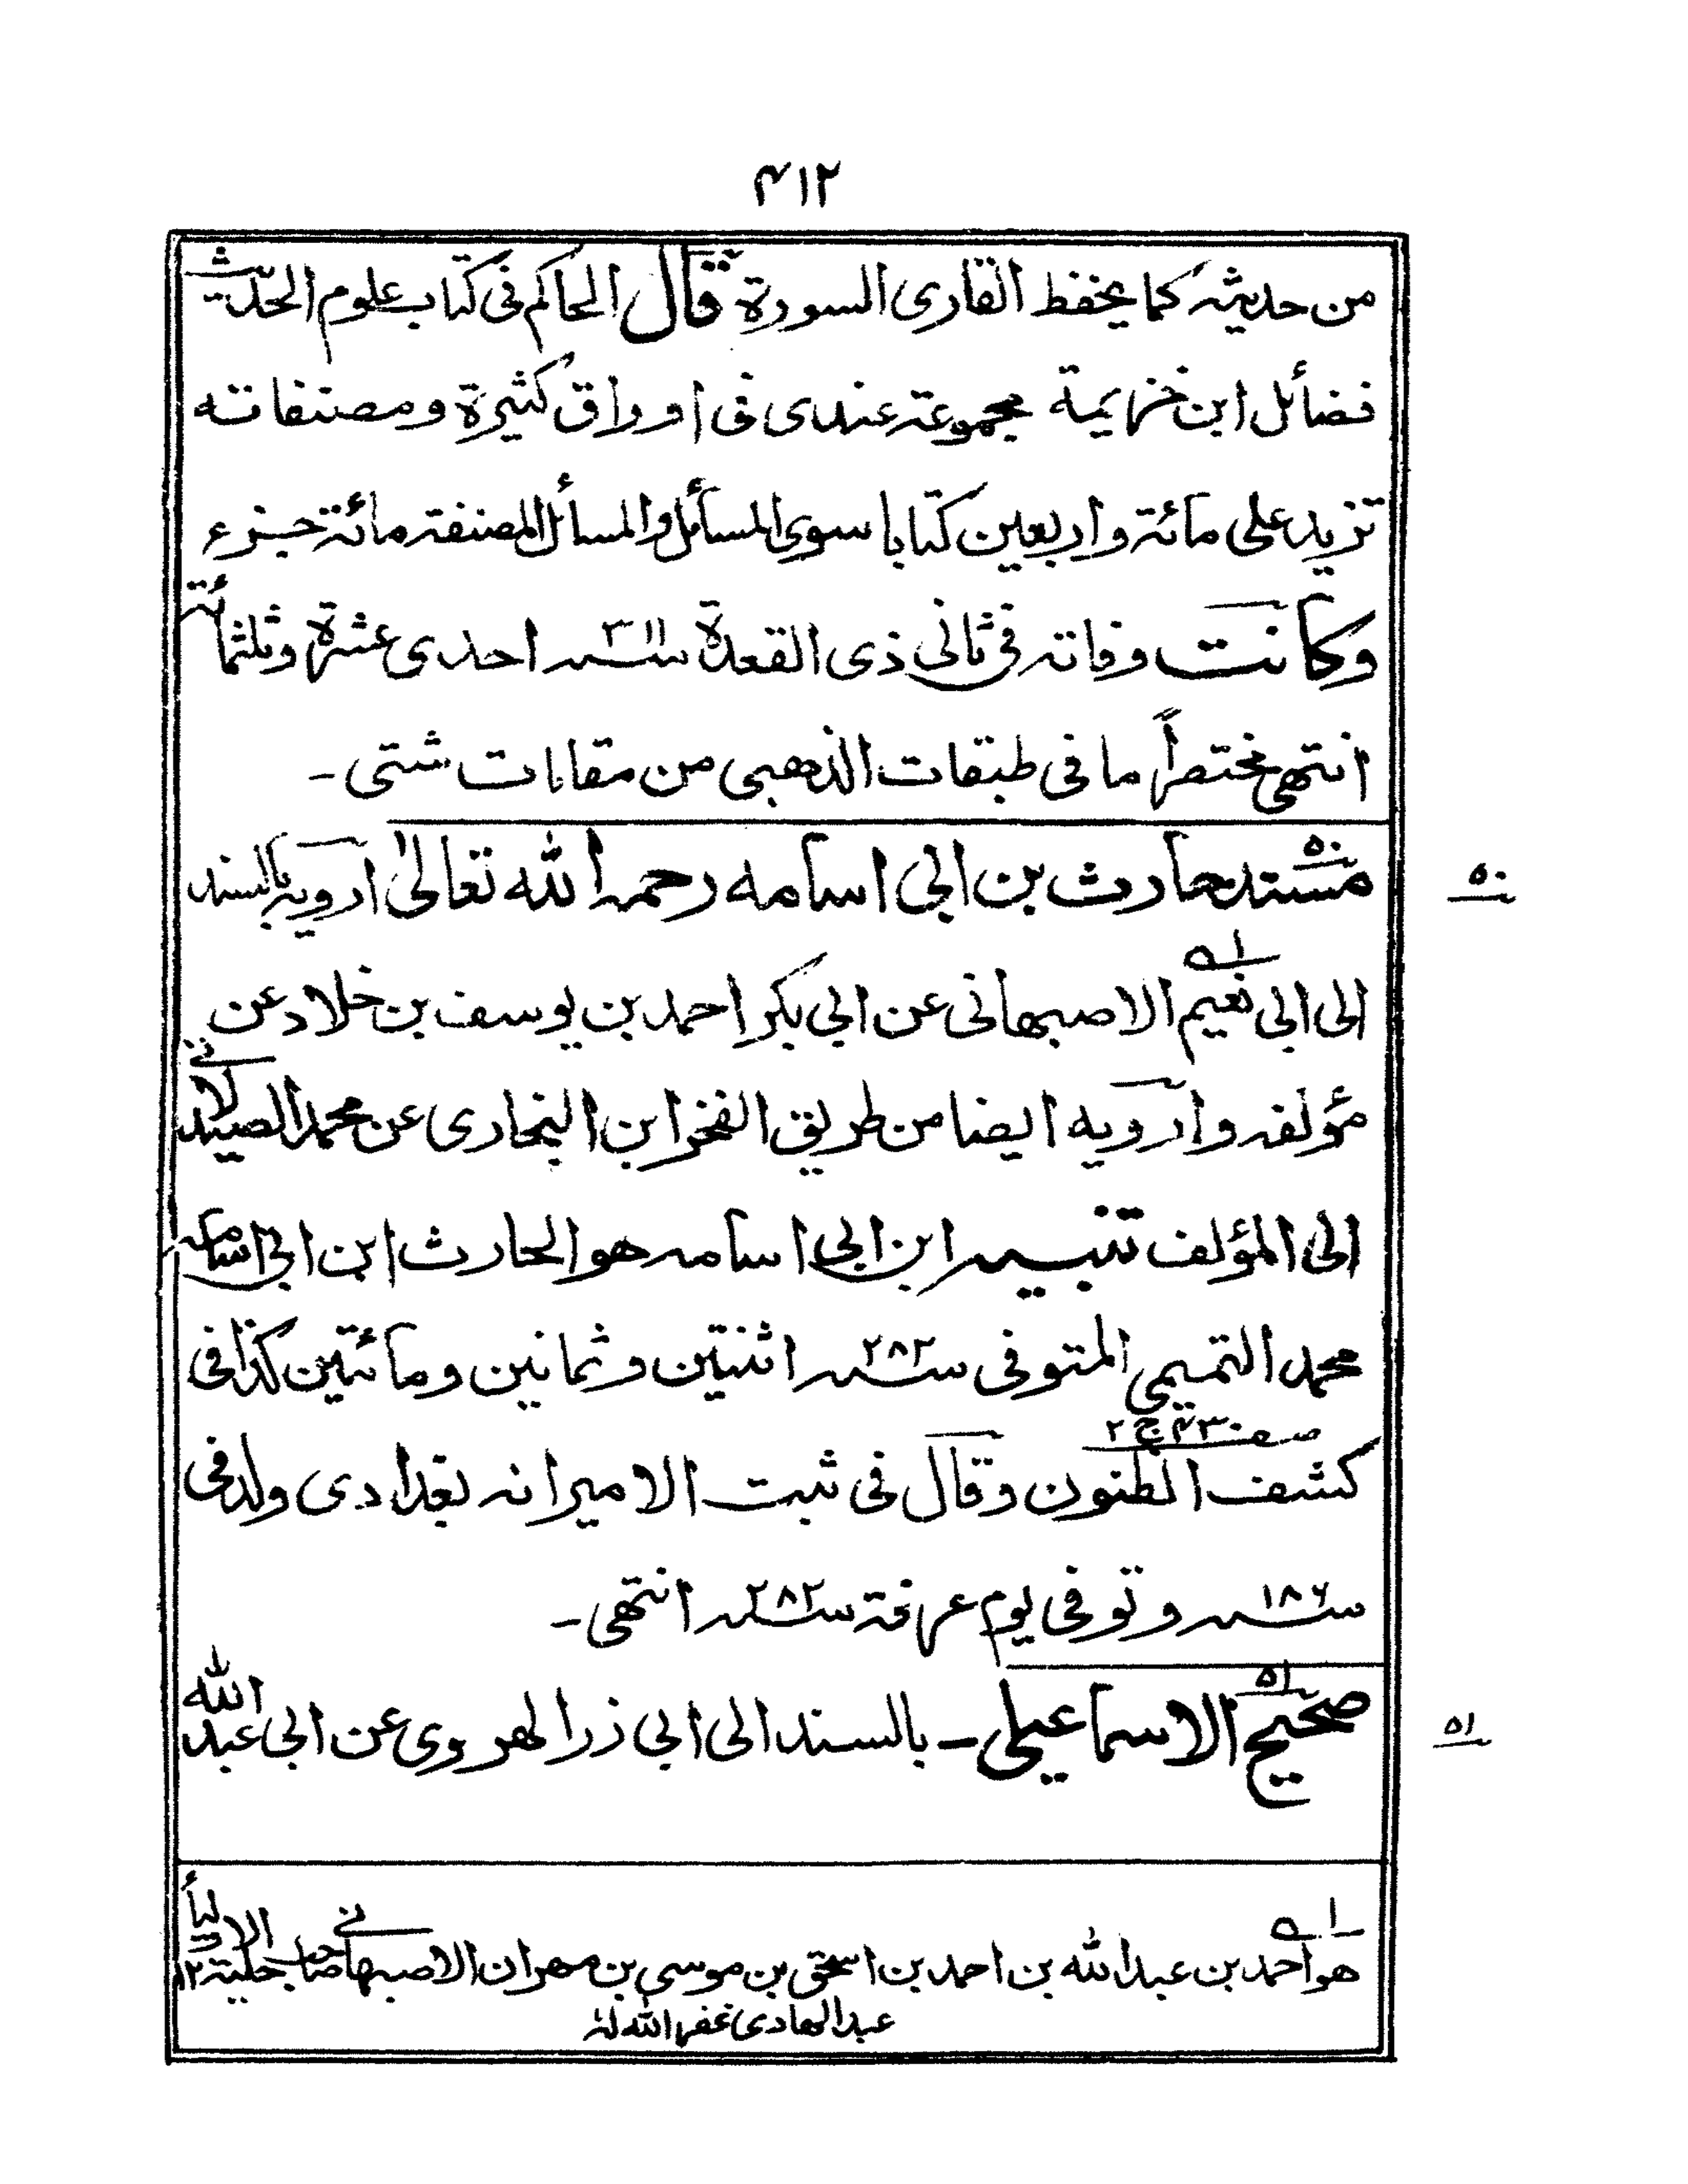 ۴۱۲
من حديثه كما يحفظ القارى السورة قال الحاكم فى كتاب علوم الحديث
فضائل ابن خزيمة مجموعة عندى فى اوراق كثيرة ومصنفاته
تزيد على مائة واربعين كتابا سوى المسائل والمسائل المصنفة مائة جزء
وكانت وفاته فى ثانى ذى القعدة سنه ۳۱۱ احدى عشرة وثلثمائة
انتهى مختصراً ما فى طبقات الذهبى من مقامات شتى ۔
۵۰ مسند حارث بن ابى اسامه رحمه الله تعالىٰ ارويه بالسند
۵۰
الى ابى نعيم الاصبهانى عن ابى بكر احمد بن يوسف بن خلاد عن
مؤلفه وارويه ايضا من طريق الفخر ابن البخارى عن محمد الصيدلانى
الى المؤلف تنبيه ابن ابى اسامه هو الحارث ابن ابى اسامه
محمد التميمى المتوفى سنه ۲۸۲ اثنتين وثمانين ومائتين كذا فى
صفه ۴۳۰ ج ۲
كشف الظنون وقال فى ثبت الامير انه بغدادى ولد فى
سنه ۱۸۶ وتوفى يوم عرفة سنه ۲۸۲ انتهى ۔
۵۱ صحيح الاسماعيلى ۔ بالسند الى ابى ذر الهروى عن ابى عبد الله
۵۱
۱ـه هو احمد بن عبد الله بن احمد بن اسحٰق بن موسى بن مهران الاصبهانى صاحب حلية الاولياء ۱۲
عبد الهادى غفر الله له